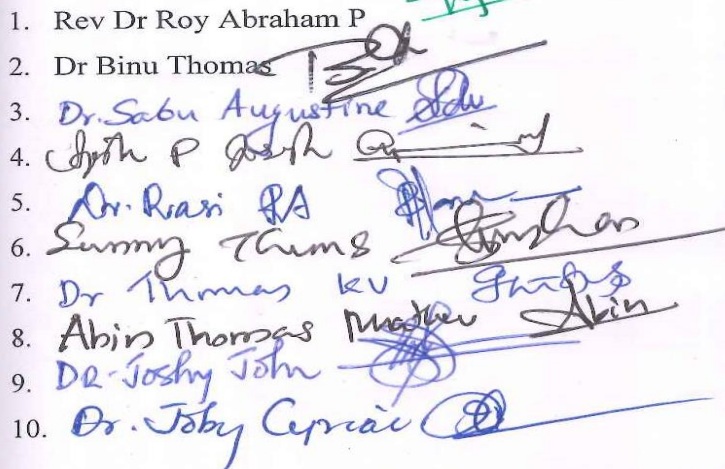 1. Rev Dr Roy Abraham P
2. Dr Binu Thomas
3. Dr. Sabu Augustine
4. P Joseph
5. Dr.
6. Sunny Thomas
7. Dr Thomas KV
8. Abin Thomas Mathew Abin
9. DR. Joshy John
10. Dr. Joby Cyriac